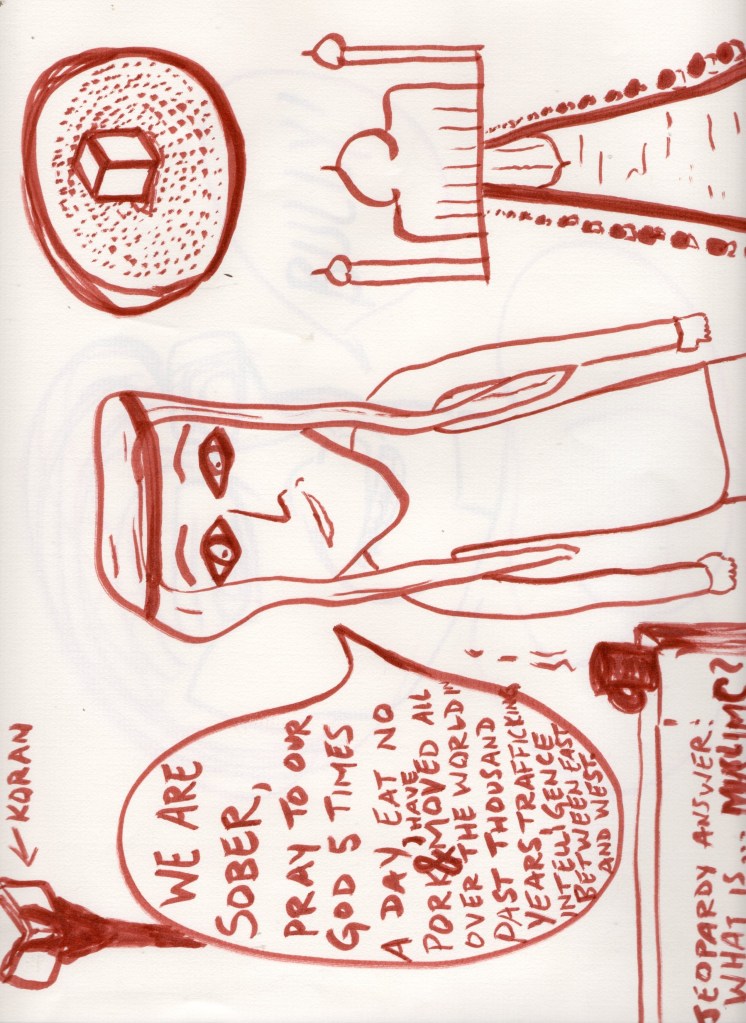 KORAN
WE ARE
SOBER,
PRAY TO OUR
GOD 5 TIMES
A DAY EAT NO
PORK & HAVE MOVED ALL
OVER THE WORLD IN
PAST THOUSAND
YEARS TRAFFICKING
INTELLIGENCE
BETWEEN EAST
AND WEST.
JEOPARDY ANSWER:
WHAT IS...